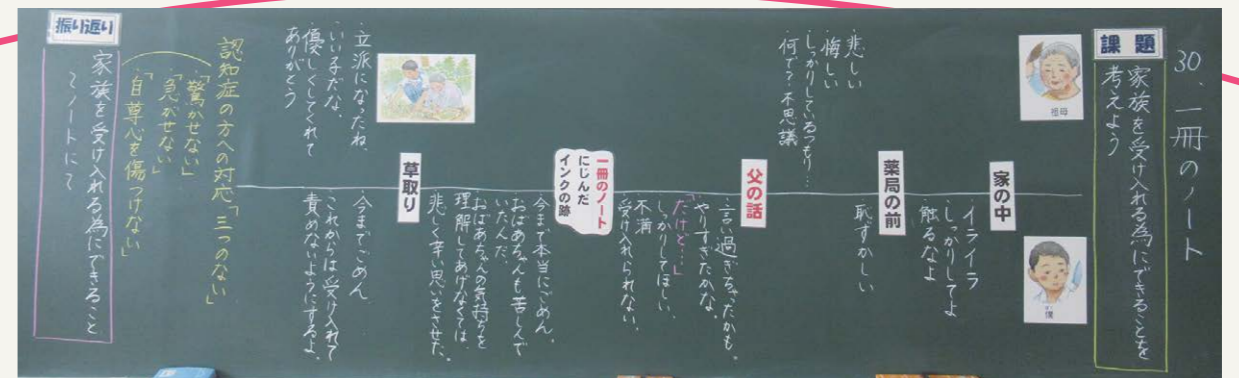 30. 一冊のノート
課題
家族を受け入れる為にできることを
考えよう
祖母
僕
家の中
・イライラ
・しっかりしてよ
・触るなよ
薬局の前
・悲しい
・悔しい
・しっかりしているつもり…
・何で？不思議
・恥ずかしい
父の話
・言い過ぎちゃったかも。
やりすぎたかな。
「だけど…」
しっかりしてほしい、
不満
受け入れられない、
一冊のノート
にじんだ
インクの跡
今まで本当にごめん。
おばあちゃんも苦しんで
いたんだ。
おばあちゃんの気持ちを
理解してあげなくては、
悲しく辛い思いをさせた。
草取り
・立派になったね、
・いい子だな、
・優しくしてくれて
ありがとう
・今までごめん
・これからは受け入れて
責めないようにするよ、
認知症の方への対応「三つのない」
「驚かせない」
「急がせない」
「自尊心を傷つけない」
振り返り
家族を受け入れる為にできること
ノートにて